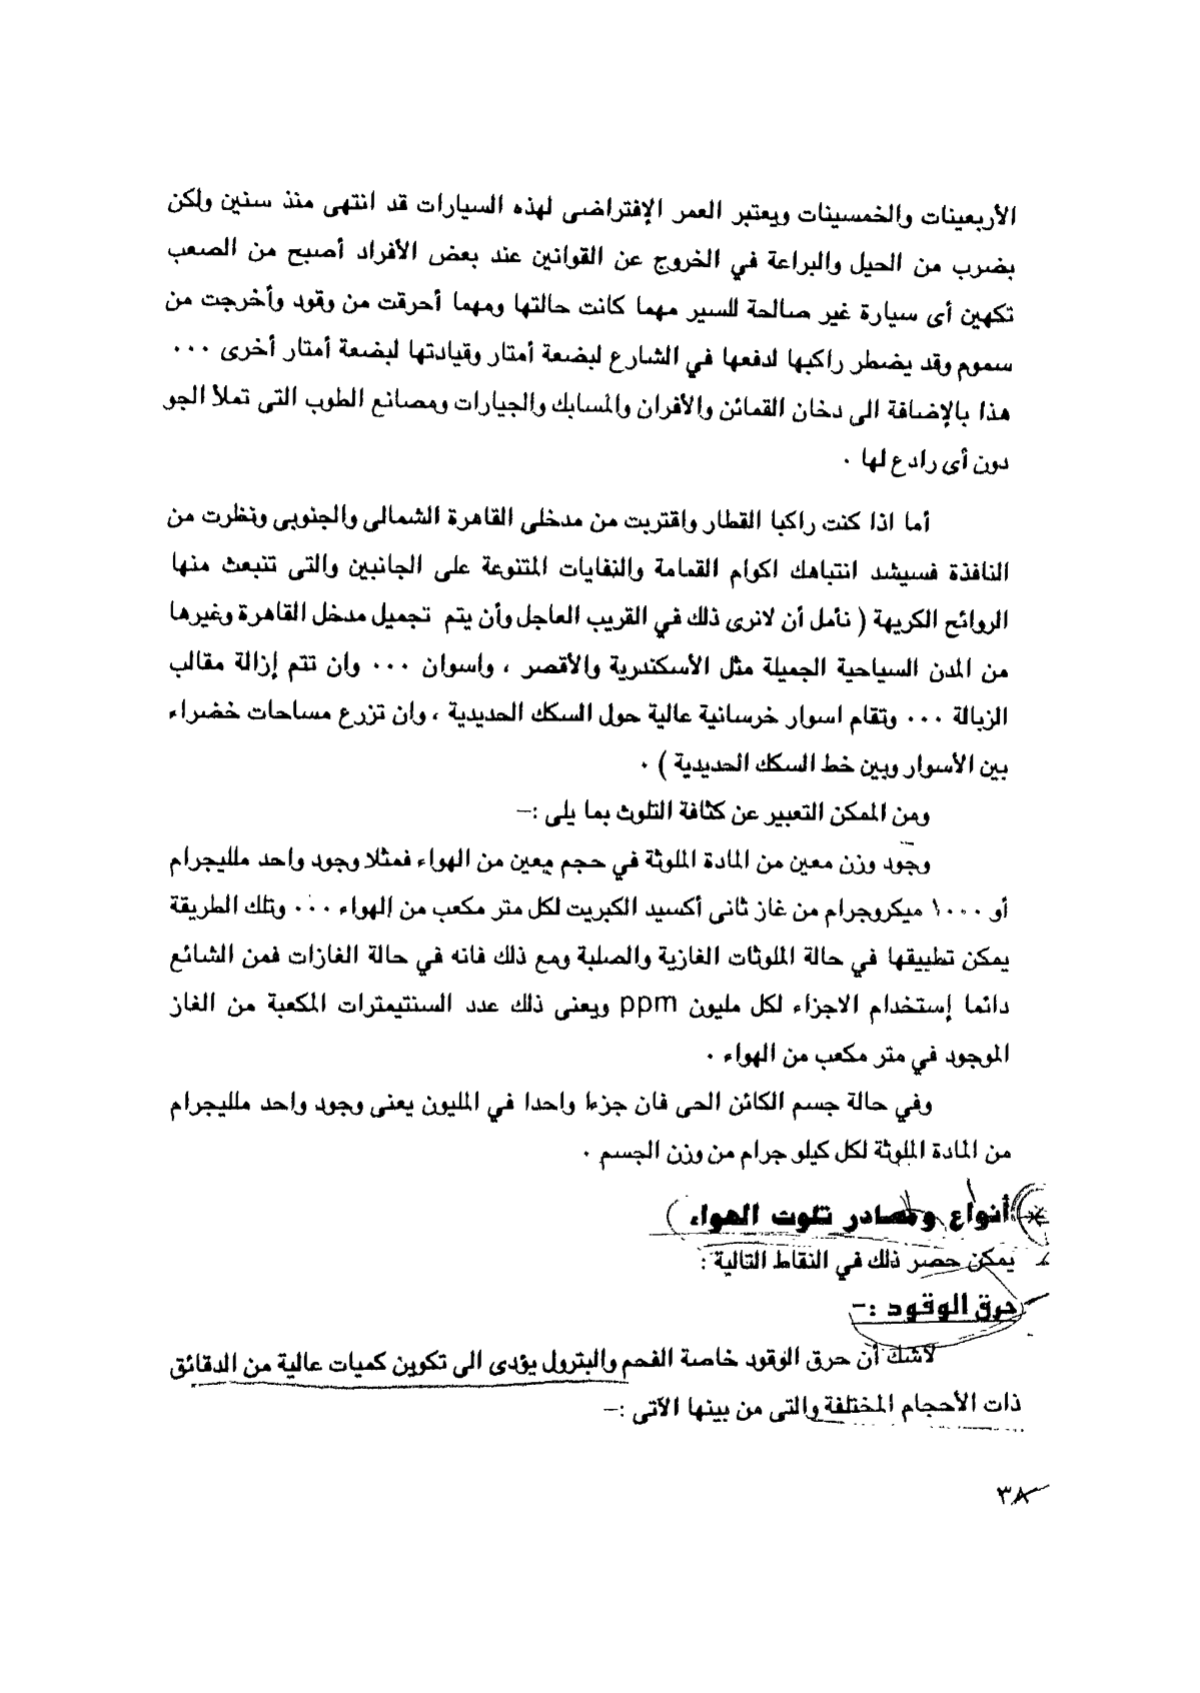 الأربعينات والخمسينات ويعتبر العمر الإفتراضى لهذه السيارات قد انتهى منذ سنين ولكن
بضرب من الحيل والبراعة في الخروج عن القوانين عند بعض الأفراد أصبح من الصعب
تكهين أى سيارة غير صالحة للسير مهما كانت حالتها ومهما أحرقت من وقود وأخرجت من
سموم وقد يضطر راكبها لدفعها في الشارع لبضعة أمتار وقيادتها لبضعة أمتار أخرى ٠٠٠
هذا بالإضافة الى دخان القمائن والأفران والمسابك والجيارات ومصانع الطوب التى تملأ الجو
دون أى رادع لها ٠
أما اذا كنت راكبا القطار واقتربت من مدخلى القاهرة الشمالى والجنوبى ونظرت من
النافذة فسيشد انتباهك اكوام القمامة والنفايات المتنوعة على الجانبين والتى تنبعث منها
الروائح الكريهة ( نأمل أن لانرى ذلك في القريب العاجل وأن يتم تجميل مدخل القاهرة وغيرها
من المدن السياحية الجميلة مثل الأسكندرية والأقصر ، واسوان ٠٠٠ وان تتم إزالة مقالب
الزبالة ٠٠٠ وتقام اسوار خرسانية عالية حول السكك الحديدية ، وان تزرع مساحات خضراء
بين الأسوار وبين خط السكك الحديدية ) ٠
ومن الممكن التعبير عن كثافة التلوث بما يلى :–
وجود وزن معين من المادة الملوثة في حجم معين من الهواء فمثلا وجود واحد ملليجرام
أو ١٠٠٠ ميكروجرام من غاز ثانى أكسيد الكبريت لكل متر مكعب من الهواء ٠٠٠ وتلك الطريقة
يمكن تطبيقها في حالة الملوثات الغازية والصلبة ومع ذلك فانه في حالة الغازات فمن الشائع
دائما إستخدام الاجزاء لكل مليون ppm ويعنى ذلك عدد السنتيمترات المكعبة من الغاز
الموجود في متر مكعب من الهواء ٠
وفي حالة جسم الكائن الحى فان جزءا واحدا في المليون يعنى وجود واحد ملليجرام
من المادة الملوثة لكل كيلو جرام من وزن الجسم ٠
أنواع ومصادر تلوث الهواء
يمكن حصر ذلك في النقاط التالية :
حرق الوقود :–
لاشك أن حرق الوقود خاصة الفحم والبترول يؤدى الى تكوين كميات عالية من الدقائق
ذات الأحجام المختلفة والتى من بينها الآتى :–
٣٨